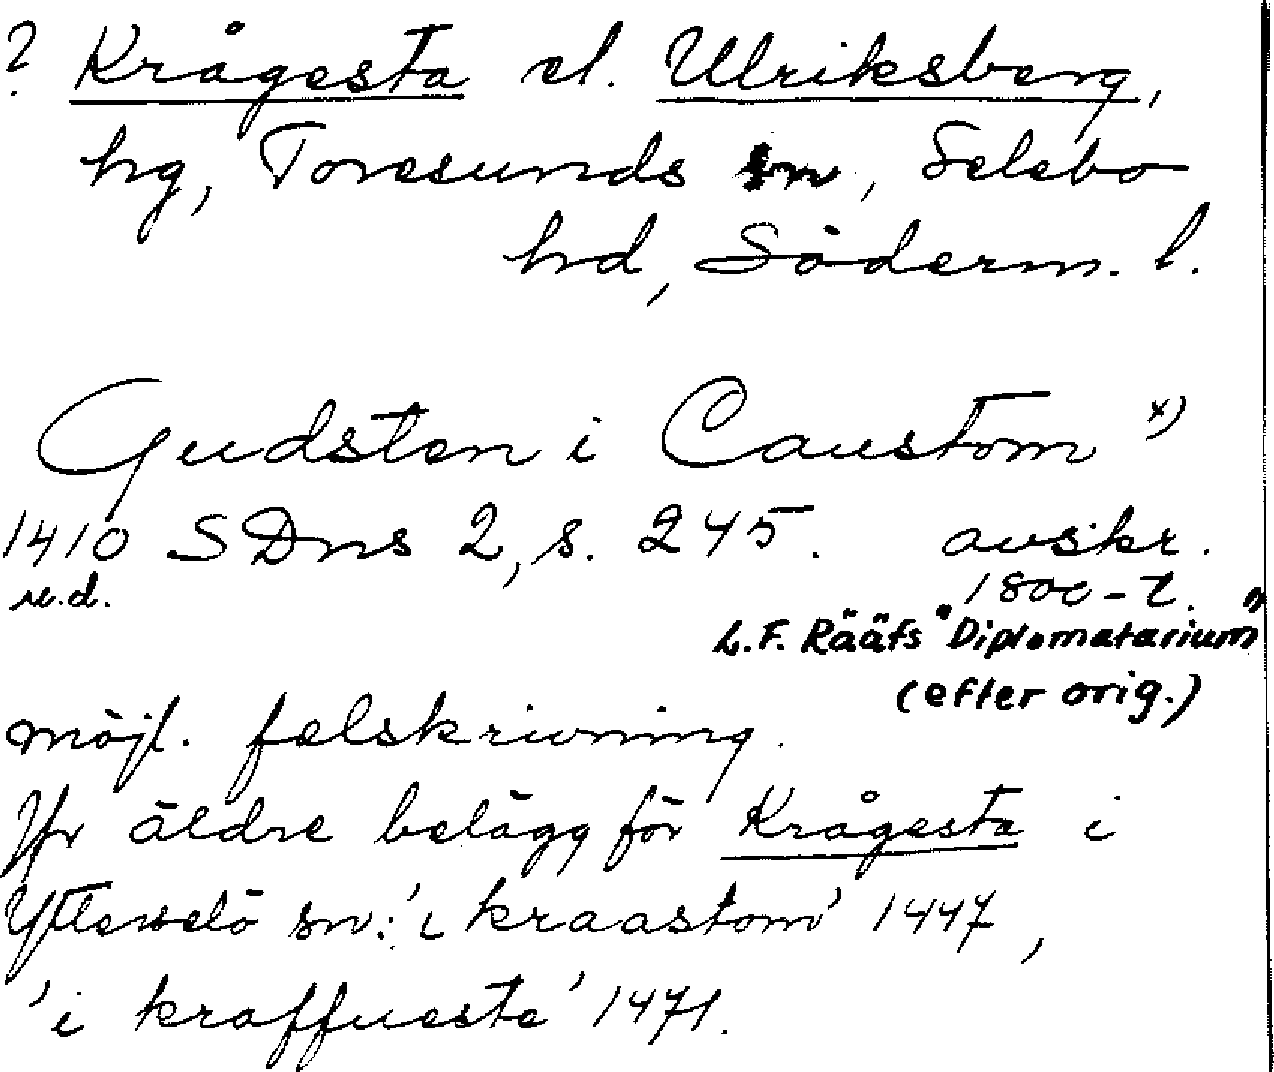 ? Krågesta el. Ulriksberg,
hg, Toresunds sn, Selebo
hd, Söderm. l.
Gudsten i Caustom x)
1410 SDns 2, s. 245. avskr.
u.d. 1800-t.
L.F. Rääfs "Diplomatarium"
(efter orig.)
möjl. felskrivning.
Jfr äldre belägg för Krågesta i
Ytterselö sn: 'i kraastom' 1447,
'i kraffuesta' 1471.